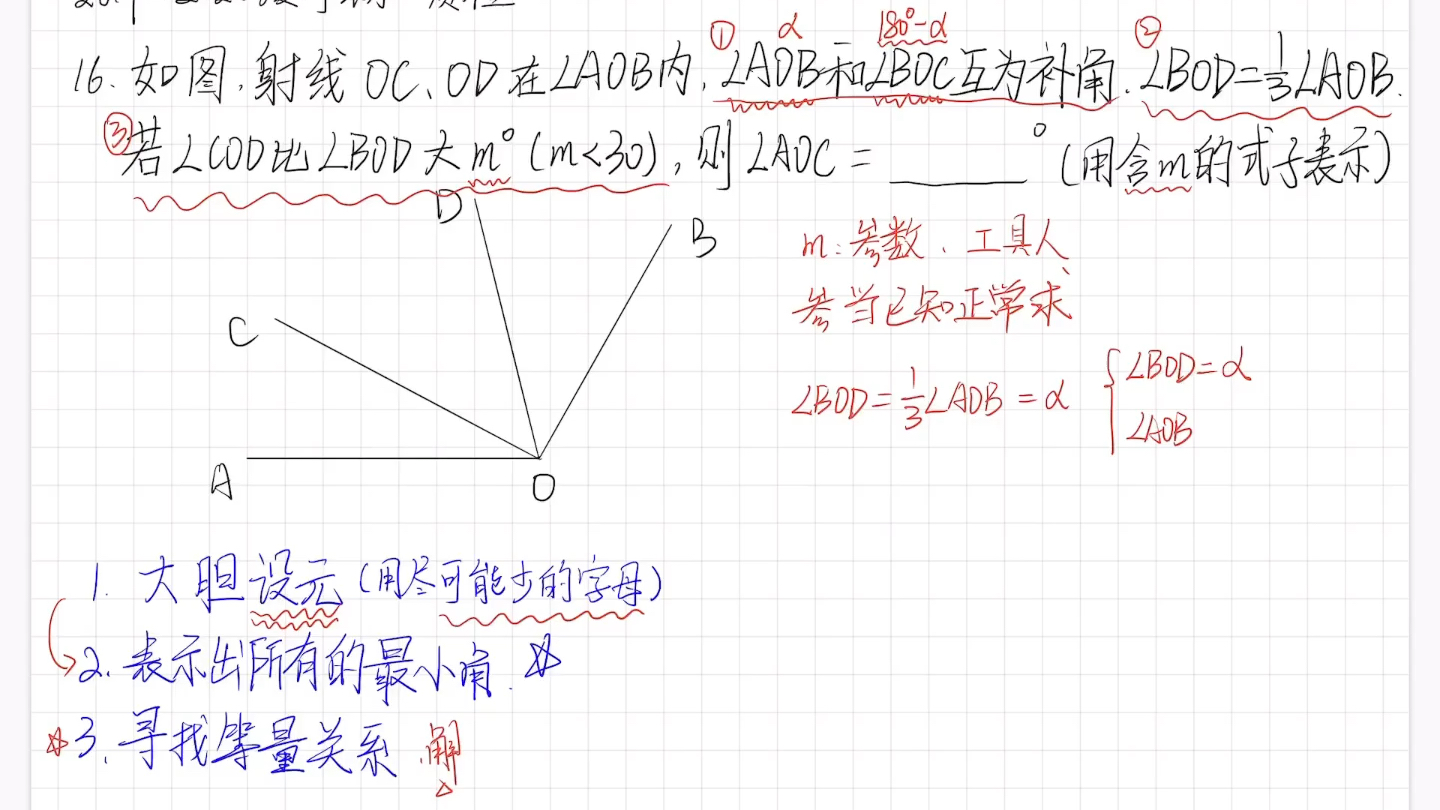 ① α 180°-α ②
16.如图,射线 OC、OD 在∠AOB内,∠AOB和∠BOC互为补角.∠BOD=1/3∠AOB.
③若∠COD比∠BOD大m°(m<30),则∠AOC=______°(用含m的式子表示)
D
B
m:参数、工具人
C
参当已知正常求
∠BOD=1/3∠AOB=α
{∠BOD=α
∠AOB
A
O
1. 大胆设元(用尽可能少的字母)
2.表示出所有的最小角.☆
☆3.寻找等量关系.解